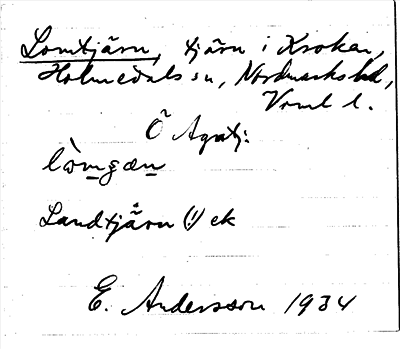 Lomtjärn, tjärn i Kroken,
Holmedals sn, Nordmarks hd,
Vrml l.
Ö Agatj:
lòmʒæn
Landtjärn (!) ek
E. Andersson 1934